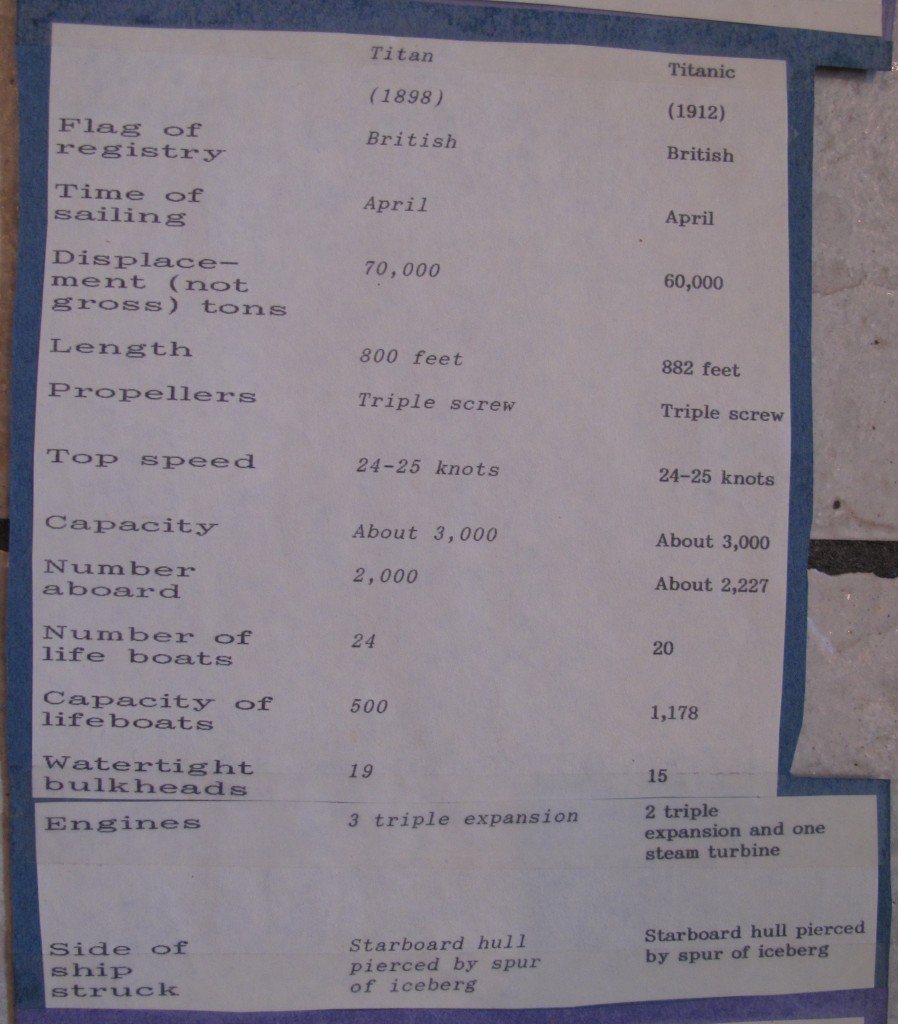 Titan Titanic
(1898) (1912)
Flag of
registry British British
Time of
sailing April April
Displace-
ment (not 70,000 60,000
gross) tons
Length 800 feet 882 feet
Propellers Triple screw Triple screw
Top speed 24-25 knots 24-25 knots
Capacity About 3,000 About 3,000
Number
aboard 2,000 About 2,227
Number of
life boats 24 20
Capacity of
lifeboats 500 1,178
Watertight
bulkheads 19 15
Engines 3 triple expansion 2 triple
expansion and one
steam turbine
Side of Starboard hull Starboard hull pierced
ship pierced by spur by spur of iceberg
struck of iceberg